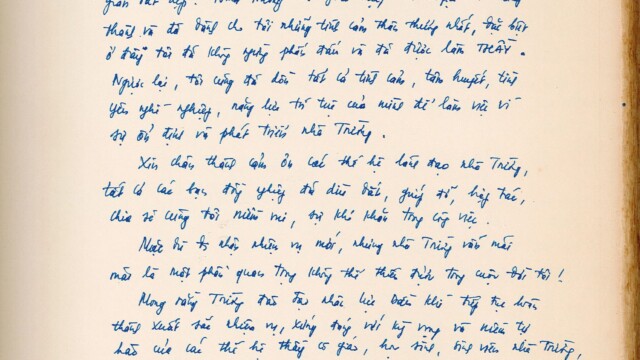 thành và đã dành cho tôi những tình cảm thân thương nhất, đặc biệt
ở đây tôi đã không ngừng phấn đấu và đã được làm THẦY.
Ngược lại, tôi cũng đã dồn tất cả tình cảm, tâm huyết, tình
yêu nghề nghiệp, năng lực trí tuệ của mình để làm việc vì
sự ổn định và phát triển nhà Trường.
Xin chân thành cảm ơn các thế hệ lãnh đạo nhà Trường,
tất cả các bạn đồng nghiệp đã dìu dắt, giúp đỡ, hợp tác,
chia sẻ cùng tôi niềm vui, sự khó khăn trong công việc.
Mặc dù đi nhận nhiệm vụ mới, nhưng nhà Trường vẫn mãi
mãi là một phần quan trọng không thể thiếu được trong cuộc đời tôi!
Mong rằng Trường đoàn kết tiếp tục hoàn
thành xuất sắc nhiệm vụ, xứng đáng với kỳ vọng và niềm tự
hào của các thế hệ thầy cô giáo, học sinh, sinh viên nhà Trường,